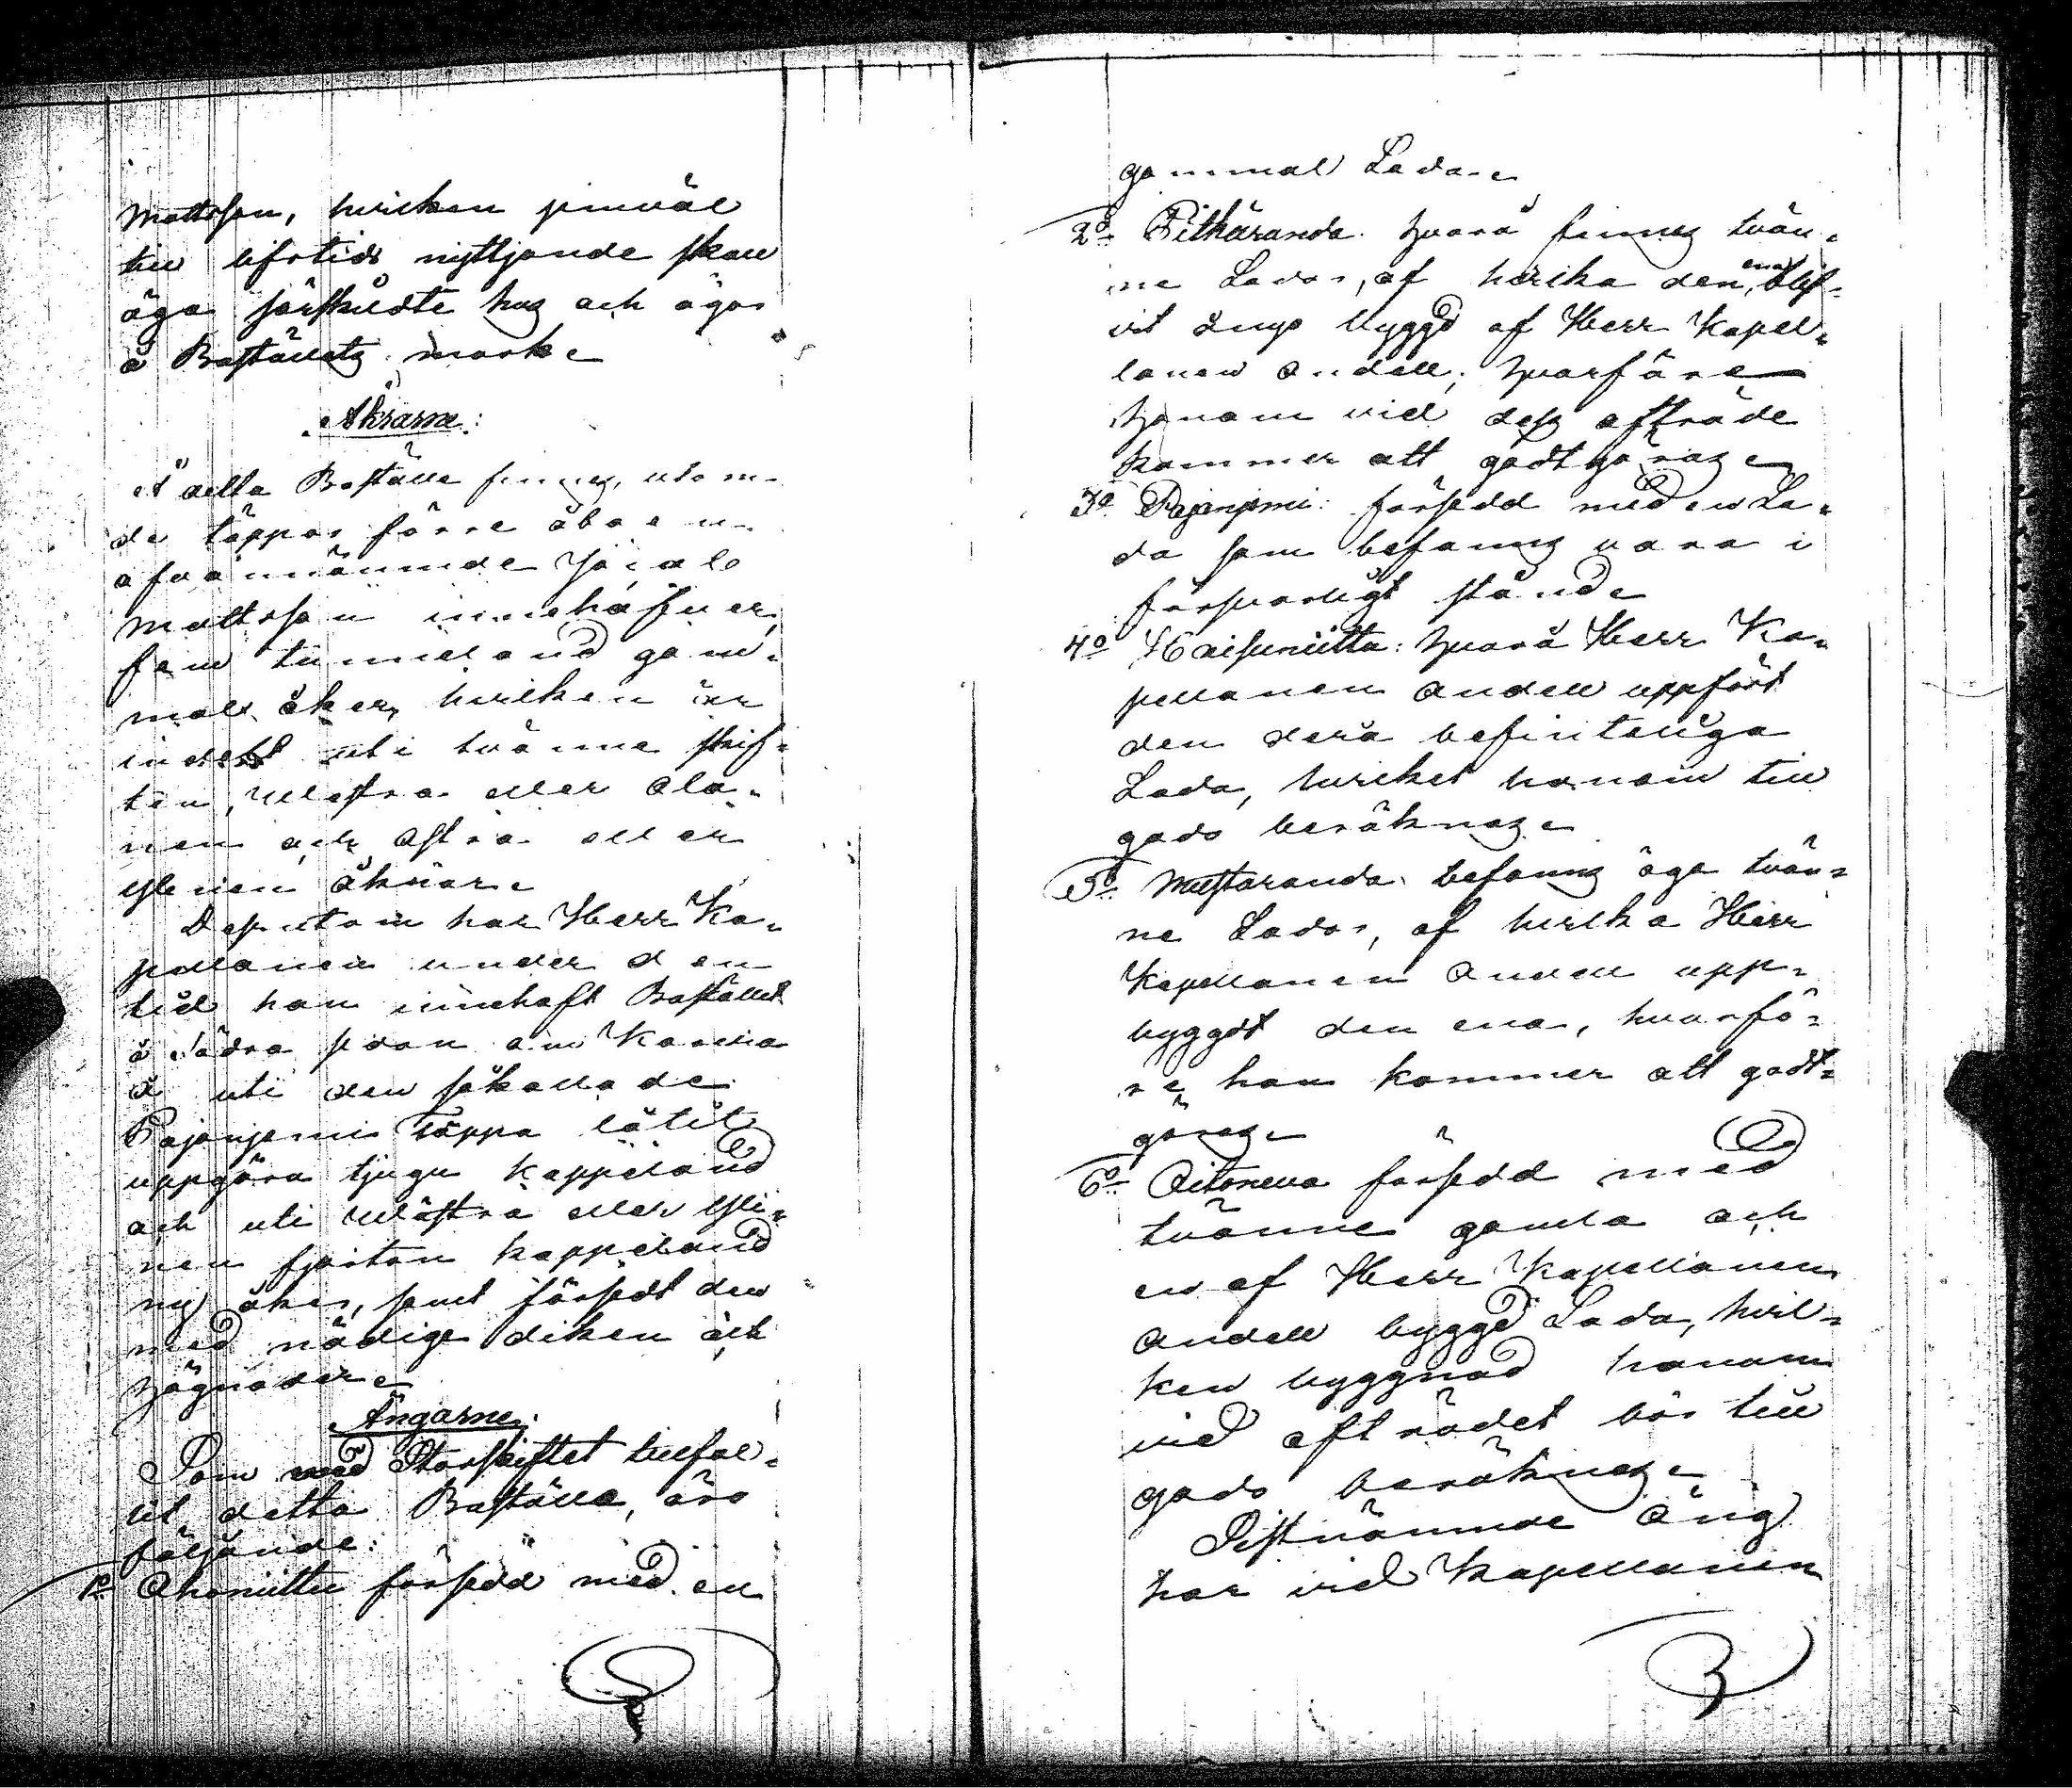 Mattsson, hvilken jemväl
till lifstids nyttjande skall
äga särskildte hus och ägor
å Boställets mark.
Åkrarne:
Å detta Boställe finnes, utom
de täppor förre åboen
ofvannämnde Johan
Mattsson innehafver,
fem tunneland gam-
mal åker, hvilken är
indelt uti tvänne skif-
ten, Westra eller Ala-
nen och Östra eller
Ylenen åkrar.
Dessutom har Herr Ka-
pellanen under den
tid han innehaft Bostället
å södra sidan om
å uti den såkallade
Pajanjemi Täppa låtit
uppgöra tjugu kappeland
och uti Westra eller Yli-
nen fjorton kappeland
ny åker, samt försedt den
med nödige diken och
hägnader.
Ängarne:
Som med Storskiftet tillfal-
lit detta Boställe, äro
följande:
1o Ahoniittu försedd med en
gammal Lada.
2o Pitkäranda. hvarå finnes tvän-
ne Lador, af hvilka den ena blif-
vit ånyo byggd af Herr Kapel-
lanen Andell; hvarföre
honom vid dess afträde
kommer att godtgöras.
3o Pajanjemi: försedd med en La-
da som befanns vara i
försvarligt stånd.
4o Haisuniitta: hvarå Herr Ka-
pellanen Andell uppfört
den derå befinteliga
Lada, hvilket honom till
godo beräknas.
5o Mustaranda: befanns äga tvän-
ne Lador, af hvilka Herr
Kapellanen Andell upp-
byggdt den ena, hvarfö-
re han kommer att godt-
göras.
6o Aitoneva försedd med
tvänne gamla och
en af Herr Kapellanen
Andell byggd Lada, hvil-
ken byggnad honom
vid afträdet bör till
godo beräknas.
Sistnämnde Äng
har vid Kapellanen